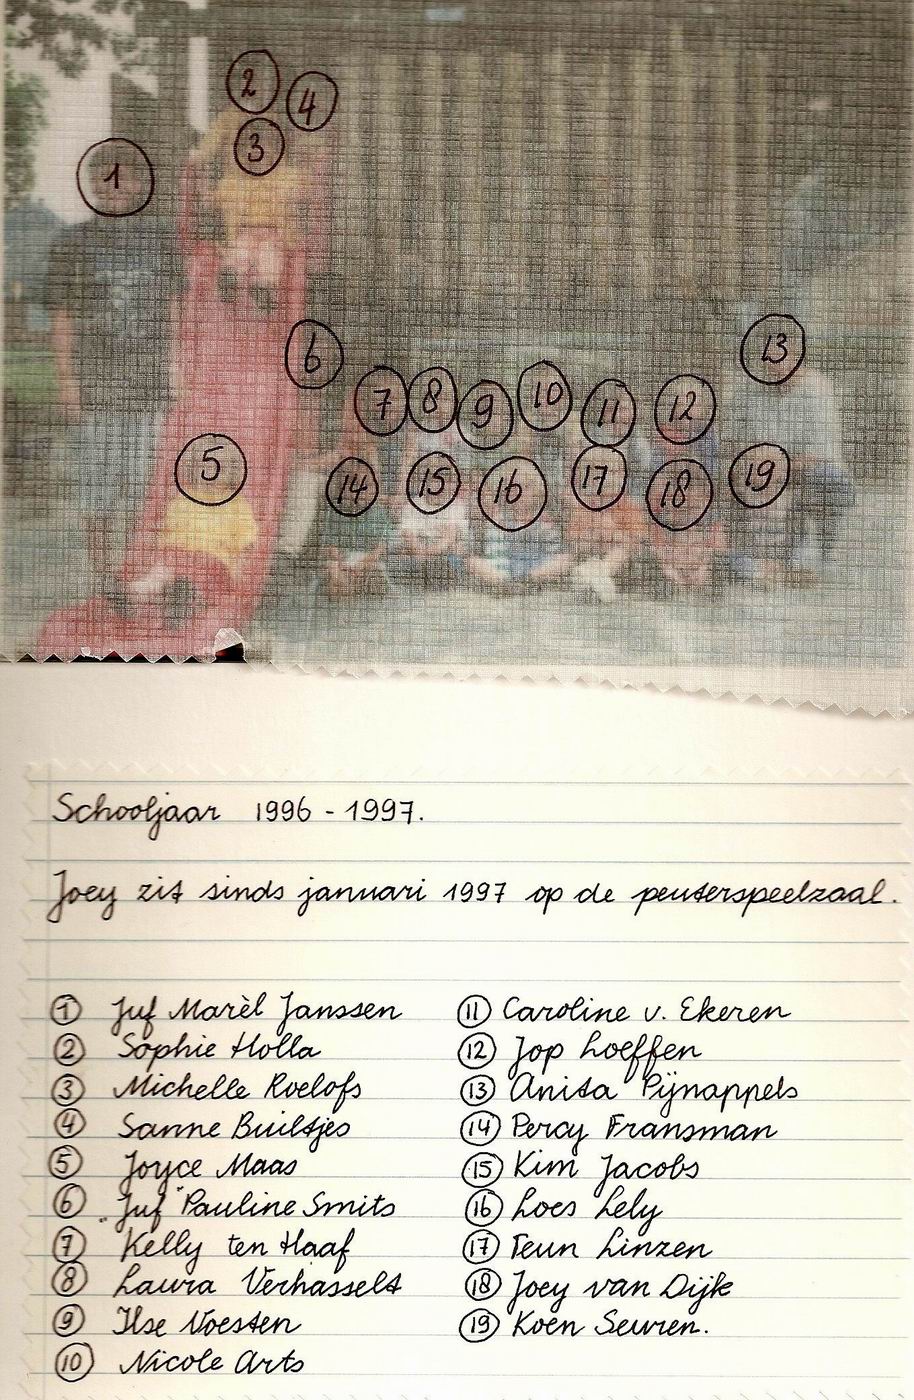 2
4
3
1
6
13
7
8
9
10
11
12
5
14
15
16
17
18
19
Schooljaar 1996 - 1997.
Joey zit sinds januari 1997 op de peuterspeelzaal.
1 Juf Marèl Janssen
2 Sophie Holla
3 Michelle Roelofs
4 Sanne Builtjes
5 Joyce Maas
6 "Juf" Pauline Smits
7 Kelly ten Haaf
8 Laura Verhasselt
9 Ilse Voesten
10 Nicole Arts
11 Caroline v. Ekeren
12 Jop Loeffen
13 Anita Pijnappels
14 Percy Fransman
15 Kim Jacobs
16 Loes Lely
17 Teun Linzen
18 Joey van Dijk
19 Koen Seuren.